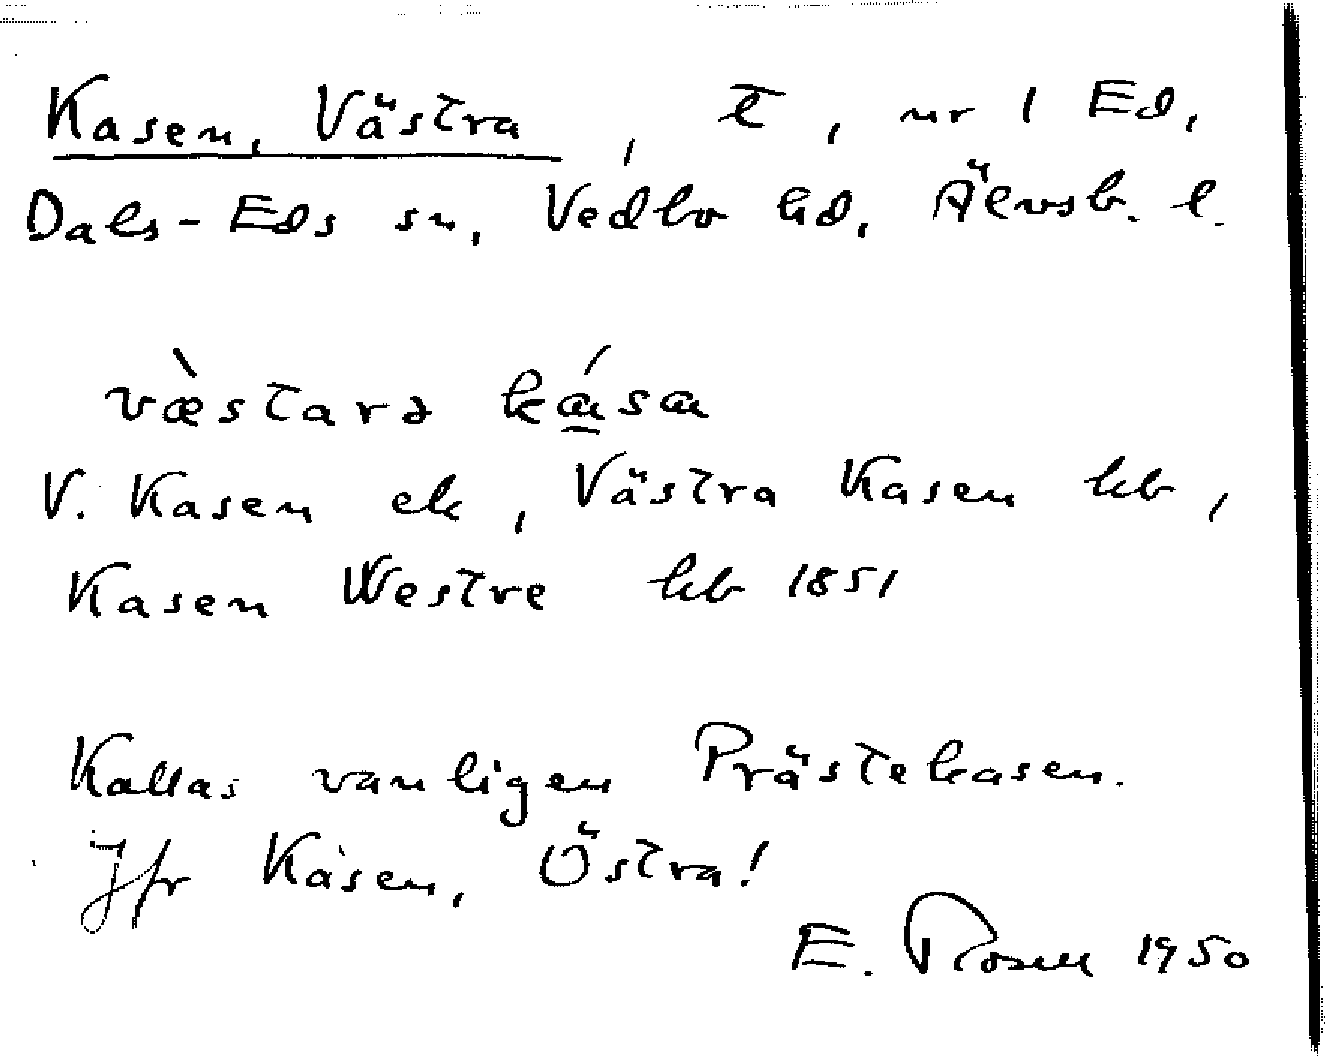 Kasen, Västra, t, nr 1 Ed,
Dals-Eds sn, Vedbo hd, Älvsb. l.
væ̀starə kɑ́sɑ
V. Kasen ek, Västra Kasen hb,
Kasen Westre hb 1851
Kallas vanligen Prästekasen.
Jfr Kasen, Östra!
E. Rosen 1950